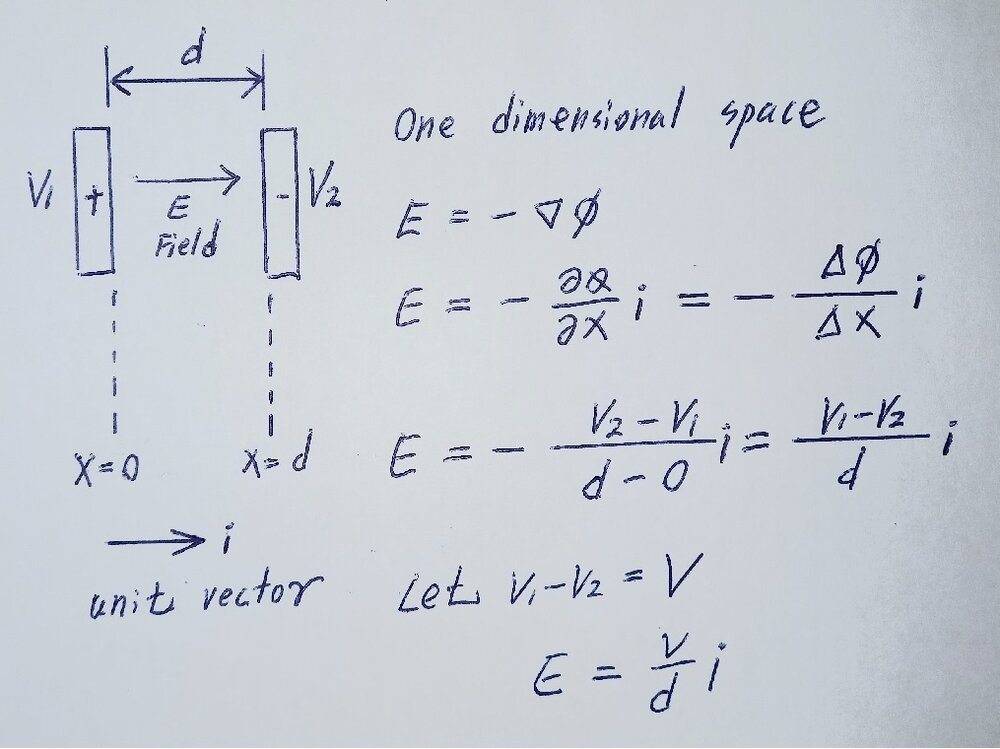 d
V1 + E - V2
Field
X=0 X=d
i
unit vector
One dimensional space
E = - ∇Ø
E = - ∂Ø/∂X i = - ΔØ/ΔX i
E = - V2 - V1/d - 0 i = V1-V2/d i
Let V1-V2 = V
E = V/d i